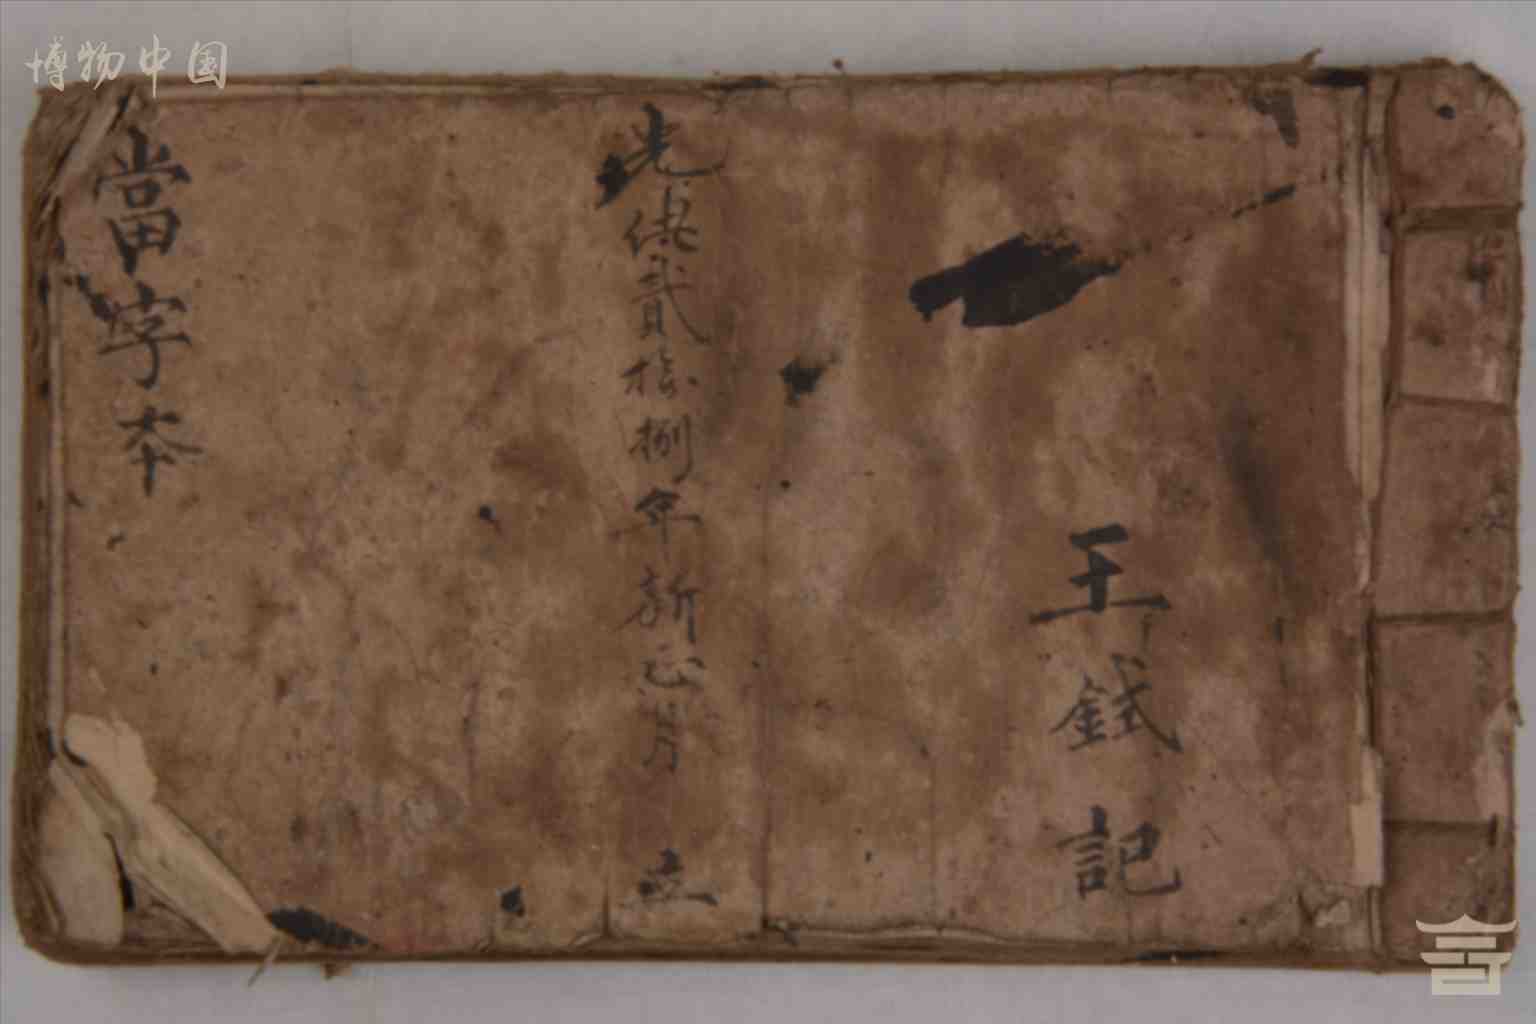 博物中国
王鋱記
光緒貳拾捌年新正月 立
當字本